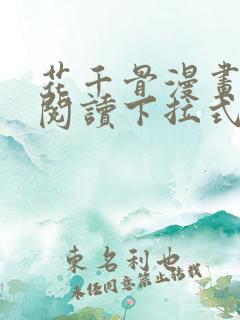 花千骨漫畫
閱讀下拉式
東名利也
未經同意禁止轉載